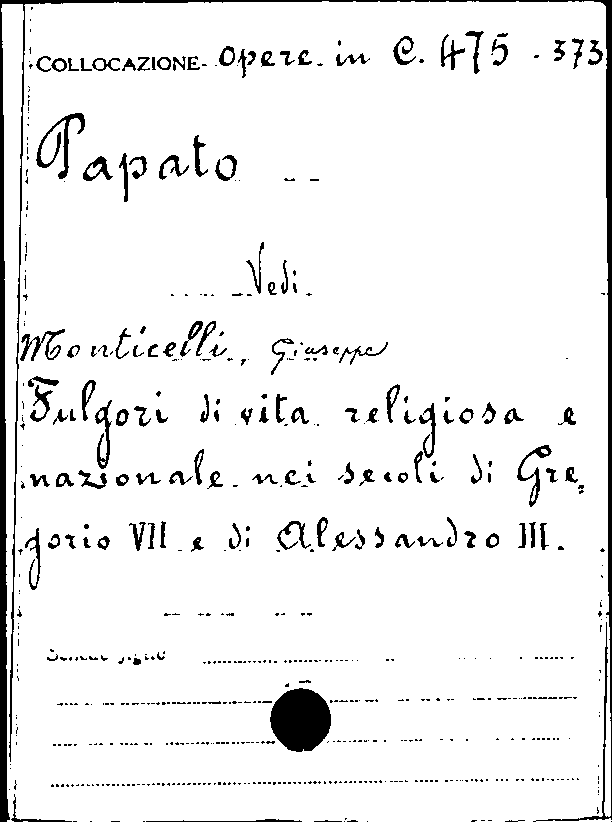 COLLOCAZIONE Opere in C. 475 . 373
Papato
Vedi
Monticelli, Giuseppe
Fulgori di vita religiosa e
nazionale nei secoli di Gre,
gorio VII e di Alessandro III.